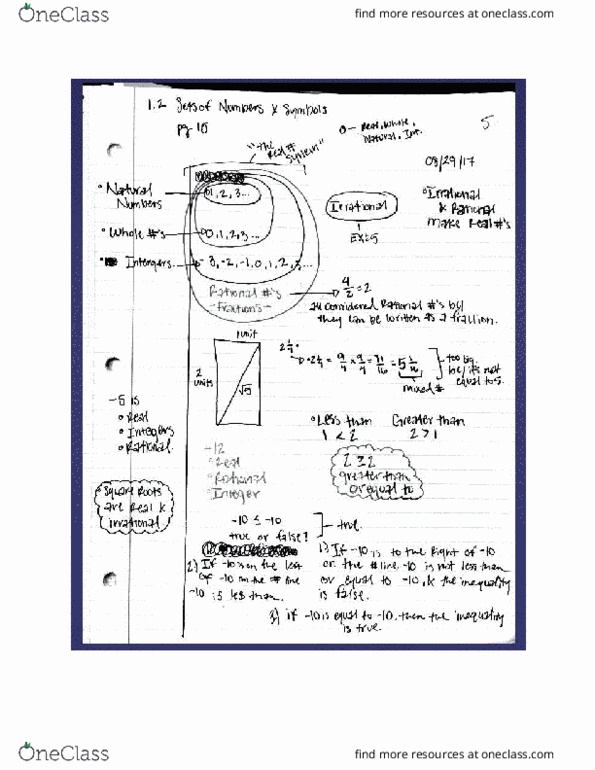 OneClass
find more resources at oneclass.com
1.2 Sets of Numbers & Symbols
pg 10
"The Real # System"
0 - Real, Whole, Natural, Int.
5
08/29/17
• Natural Numbers
1, 2, 3...
Irrational
• Irrational & Rational make Real #'s
• Whole #'s
0, 1, 2, 3...
Ex: 5
• Intergers
-3, -2, -1, 0, 1, 2, 3, ...
Rational #'s
-fractions-
4/2 = 2
all considered Rational #'s b/c
they can be written as a fraction.
1 unit
2 units
√5
2 1/4
• 2 1/4 = 9/4 × 9/4 = 81/16 = 5 1/16
mixed #
too big b/c it's not equal to 5.
-5 is
• Real
• Integers
• Rational
• Less than
1 < 2
Greater than
2 > 1
-12
• Real
• Rational
• Integer
2 ≥ 2
greater than
or equal to
• Square Roots
are Real &
irrational
-10 ≤ -10
true or false?
true.
2) If -10 is on the left
of -10 on the # line
-10 is less than.
1) If -10 is to the Right of -10
on the # line -10 is not less than
or equal to -10, & the inequality
is false.
3) if -10 is equal to -10, then the inequality
is true.
OneClass
find more resources at oneclass.com